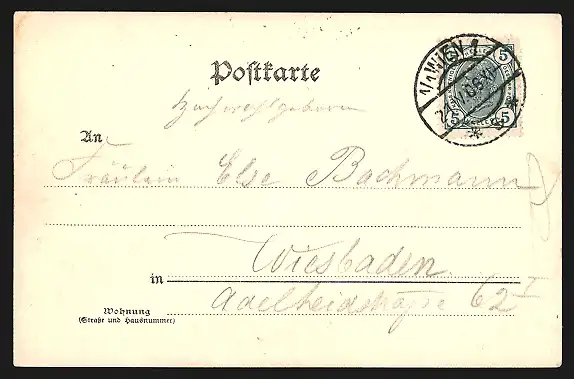 Postkarte
Hochwohlgeboren
An
Fräulein Else Bachmann
Wiesbaden
in
Adelheidstrasse 62 I
Wohnung
(Straße und Hausnummer)
1/1 WIEN 1
5 5
5 5